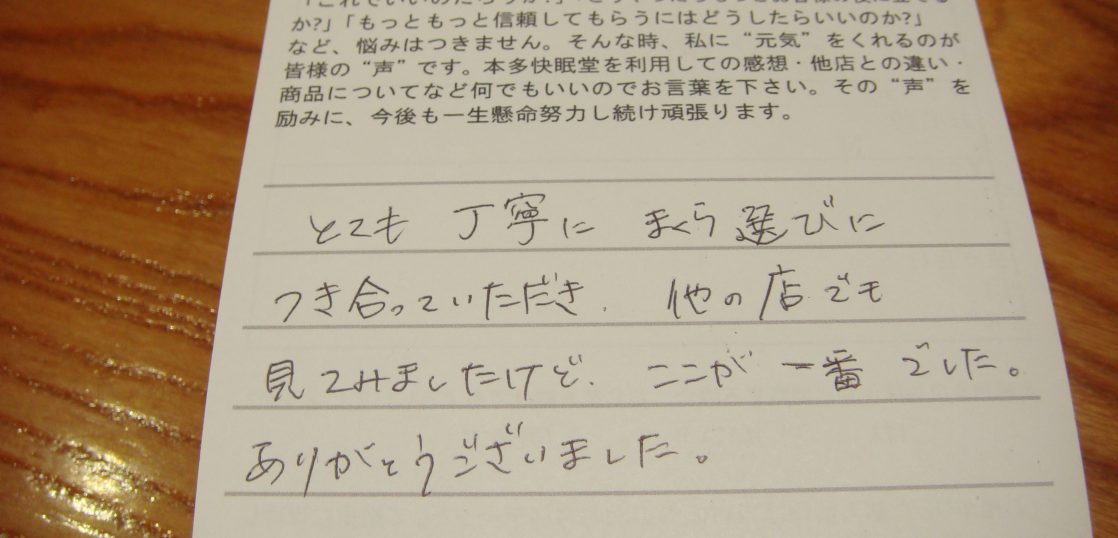 か?」「もっともっと信頼してもらうにはどうしたらいいのか?」
など、悩みはつきません。そんな時、私に“元気”をくれるのが
皆様の“声”です。本多快眠堂を利用しての感想・他店との違い・
商品についてなど何でもいいのでお言葉を下さい。その“声”を
励みに、今後も一生懸命努力し続け頑張ります。
とても 丁寧に まくら選びに
つき合っていただき、 他の店でも
見てみましたけど、 ここが 一番 でした。
ありがとうございました。